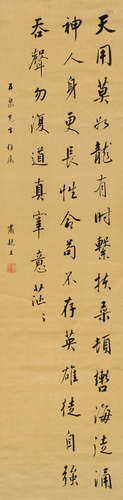 天用莫如龍有时繫扶桑頓轡海徒涌
神人身更長性命苟不存英雄徒自強
吞聲勿復道真宰意茫〻
先生
肅親王